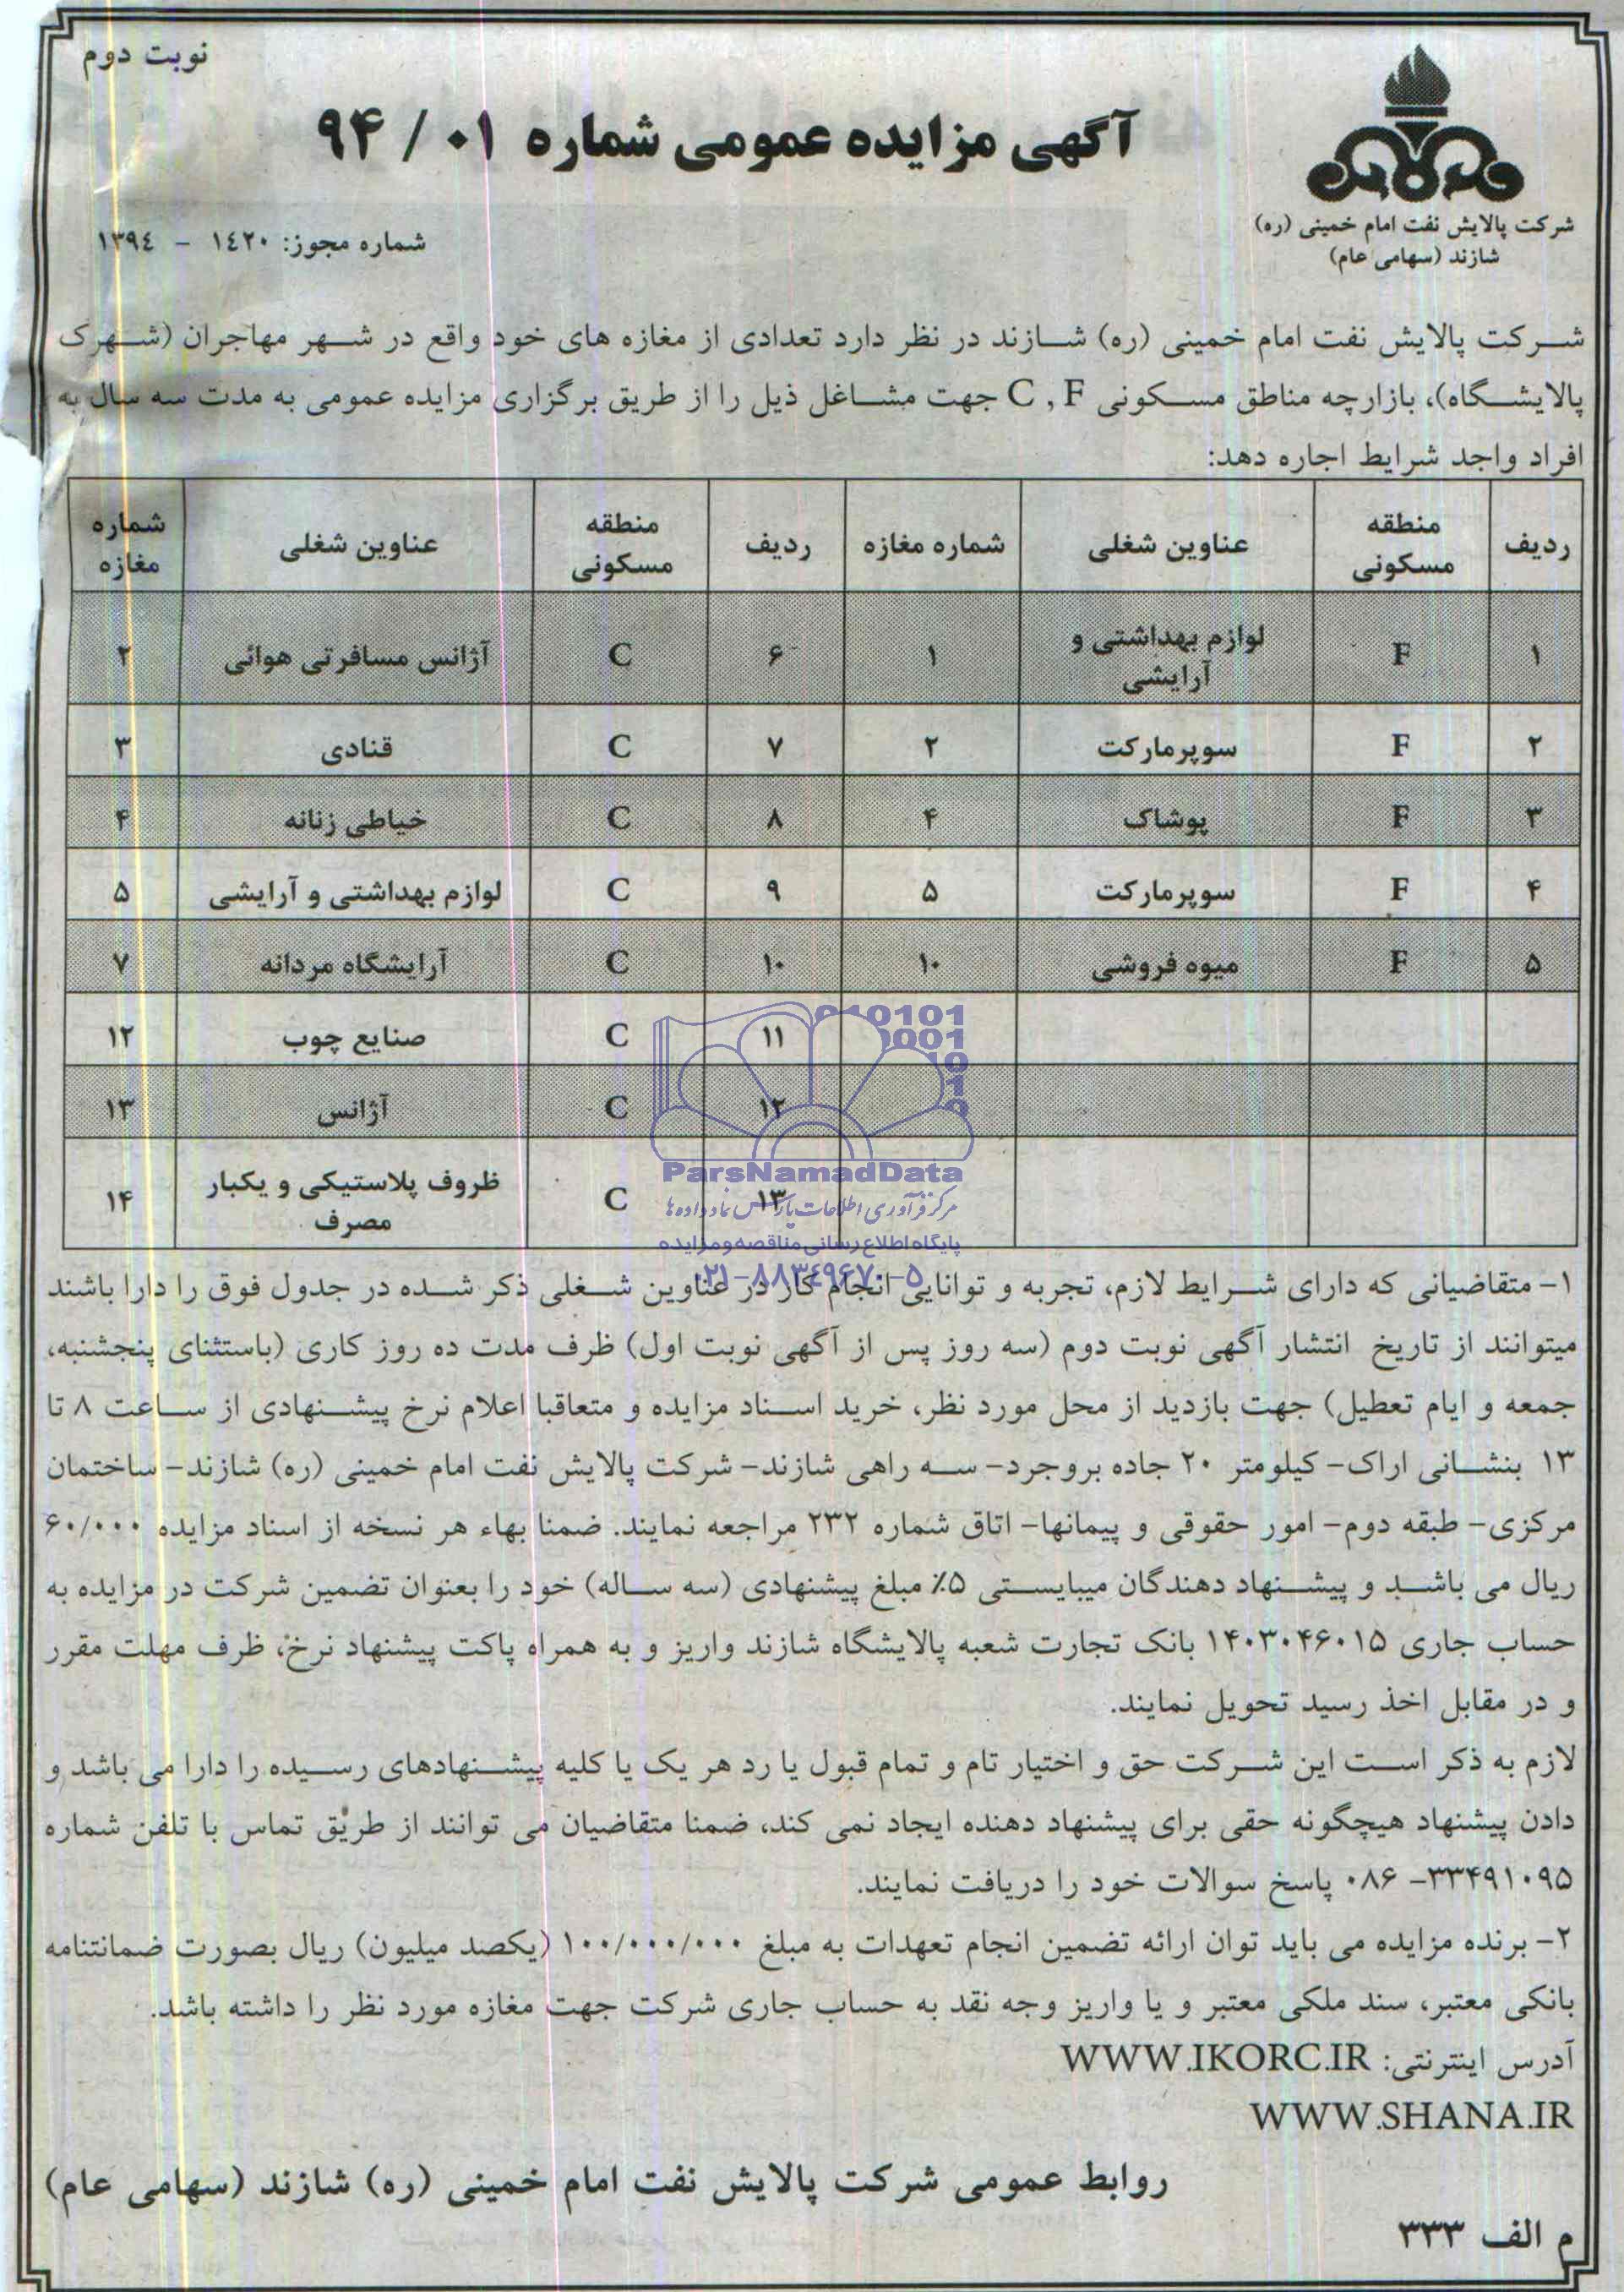 نوبت دوم
آگهی مزایده عمومی شماره ۰۱ / ۹۴
شرکت پالایش نفت امام خمینی (ره)
شازند (سهامی عام)
شماره مجوز: ۱٤۲۰ - ۱۳۹٤
شرکت پالایش نفت امام خمینی (ره) شازند در نظر دارد تعدادی از مغازه های خود واقع در شهر مهاجران (شهرک
پالایشگاه)، بازارچه مناطق مسکونی C , F جهت مشاغل ذیل را از طریق برگزاری مزایده عمومی به مدت سه سال به
افراد واجد شرایط اجاره دهد:
ردیف منطقه مسکونی عناوین شغلی شماره مغازه ردیف منطقه مسکونی عناوین شغلی شماره مغازه
۱ F لوازم بهداشتی و آرایشی ۱ ۶ C آژانس مسافرتی هوائی ۲
۲ F سوپرمارکت ۲ ۷ C قنادی ۳
۳ F پوشاک ۴ ۸ C خیاطی زنانه ۴
۴ F سوپرمارکت ۵ ۹ C لوازم بهداشتی و آرایشی ۵
۵ F میوه فروشی ۱۰ ۱۰ C آرایشگاه مردانه ۷
۱۱ C صنایع چوب ۱۲
۱۲ C آژانس ۱۳
۱۳ C ظروف پلاستیکی و یکبار مصرف ۱۴
ParsNamadData
مرکز فرآوری اطلاعات پارس نماد داده ها
پایگاه اطلاع رسانی مناقصه و مزایده
۰۲۱-۸۸۳٤۹۶۷۰-۵
۱- متقاضیانی که دارای شرایط لازم، تجربه و توانایی انجام کار در عناوین شغلی ذکر شده در جدول فوق را دارا باشند
میتوانند از تاریخ انتشار آگهی نوبت دوم (سه روز پس از آگهی نوبت اول) ظرف مدت ده روز کاری (باستثنای پنجشنبه،
جمعه و ایام تعطیل) جهت بازدید از محل مورد نظر، خرید اسناد مزایده و متعاقبا اعلام نرخ پیشنهادی از ساعت ۸ تا
۱۳ بنشانی اراک- کیلومتر ۲۰ جاده بروجرد- سه راهی شازند- شرکت پالایش نفت امام خمینی (ره) شازند- ساختمان
مرکزی- طبقه دوم- امور حقوقی و پیمانها- اتاق شماره ۲۳۲ مراجعه نمایند. ضمنا بهاء هر نسخه از اسناد مزایده ۶۰/۰۰۰
ریال می باشد و پیشنهاد دهندگان میبایستی ۵٪ مبلغ پیشنهادی (سه ساله) خود را بعنوان تضمین شرکت در مزایده به
حساب جاری ۱۴۰۳۰۴۶۰۱۵ بانک تجارت شعبه پالایشگاه شازند واریز و به همراه پاکت پیشنهاد نرخ، ظرف مهلت مقرر
و در مقابل اخذ رسید تحویل نمایند.
لازم به ذکر است این شرکت حق و اختیار تام و تمام قبول یا رد هر یک یا کلیه پیشنهادهای رسیده را دارا می باشد و
دادن پیشنهاد هیچگونه حقی برای پیشنهاد دهنده ایجاد نمی کند، ضمنا متقاضیان می توانند از طریق تماس با تلفن شماره
۳۳۴۹۱۰۹۵- ۰۸۶ پاسخ سوالات خود را دریافت نمایند.
۲- برنده مزایده می باید توان ارائه تضمین انجام تعهدات به مبلغ ۱۰۰/۰۰۰/۰۰۰ (یکصد میلیون) ریال بصورت ضمانتنامه
بانکی معتبر، سند ملکی معتبر و یا واریز وجه نقد به حساب جاری شرکت جهت مغازه مورد نظر را داشته باشد.
آدرس اینترنتی: WWW.IKORC.IR
WWW.SHANA.IR
روابط عمومی شرکت پالایش نفت امام خمینی (ره) شازند (سهامی عام)
م الف ۳۳۳